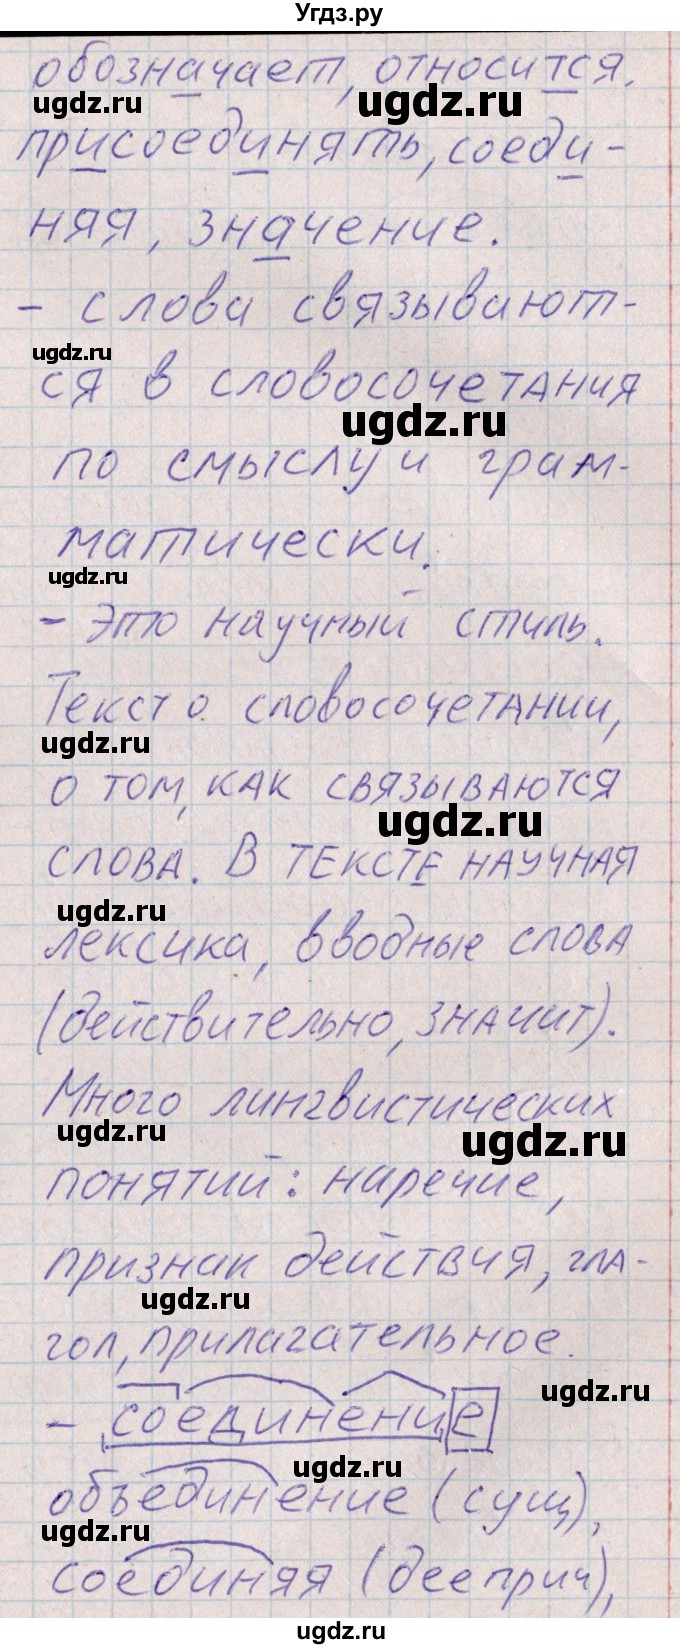 Угдз.ру
обозначает, относится,
ugdz.ru
ugdz.ru
присоединять, соеди-
няя, значение.
- слова связывают-
ugdz.ru
ся в словосочетания
ugdz.ru
по смыслу и грам-
матически.
ugdz.ru
- Это научный стиль.
Текст о словосочетании,
ugdz.ru
о том, как связываются
ugdz.ru
слова. В тексте научная
ugdz.ru
лексика, вводные слова
(действительно, значит).
ugdz.ru
Много лингвистических
ugdz.ru
ugdz.ru
понятий: наречие,
признак действия, гла-
ugdz.ru
гол, прилагательное.
ugdz.ru
- соединение
ugdz.ru
объединение (сущ),
ugdz.ru
соединяя (дееприч),
ugdz.ru
ugdz.ru